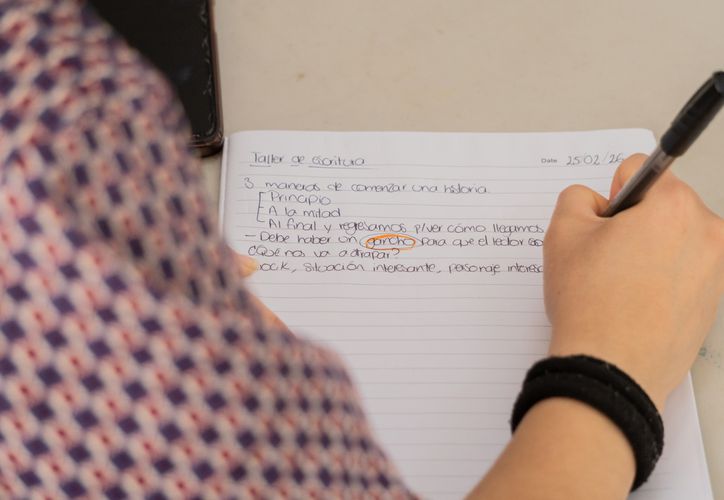 Taller de escritura
Date 25/02/26
3 maneras de comenzar una historia.
Principio
A la mitad
Al final y regresamos p/ver cómo llegamos
- Debe haber un gancho para que el lector
¿Qué nos va a atrapar?
situación interesante, personaje